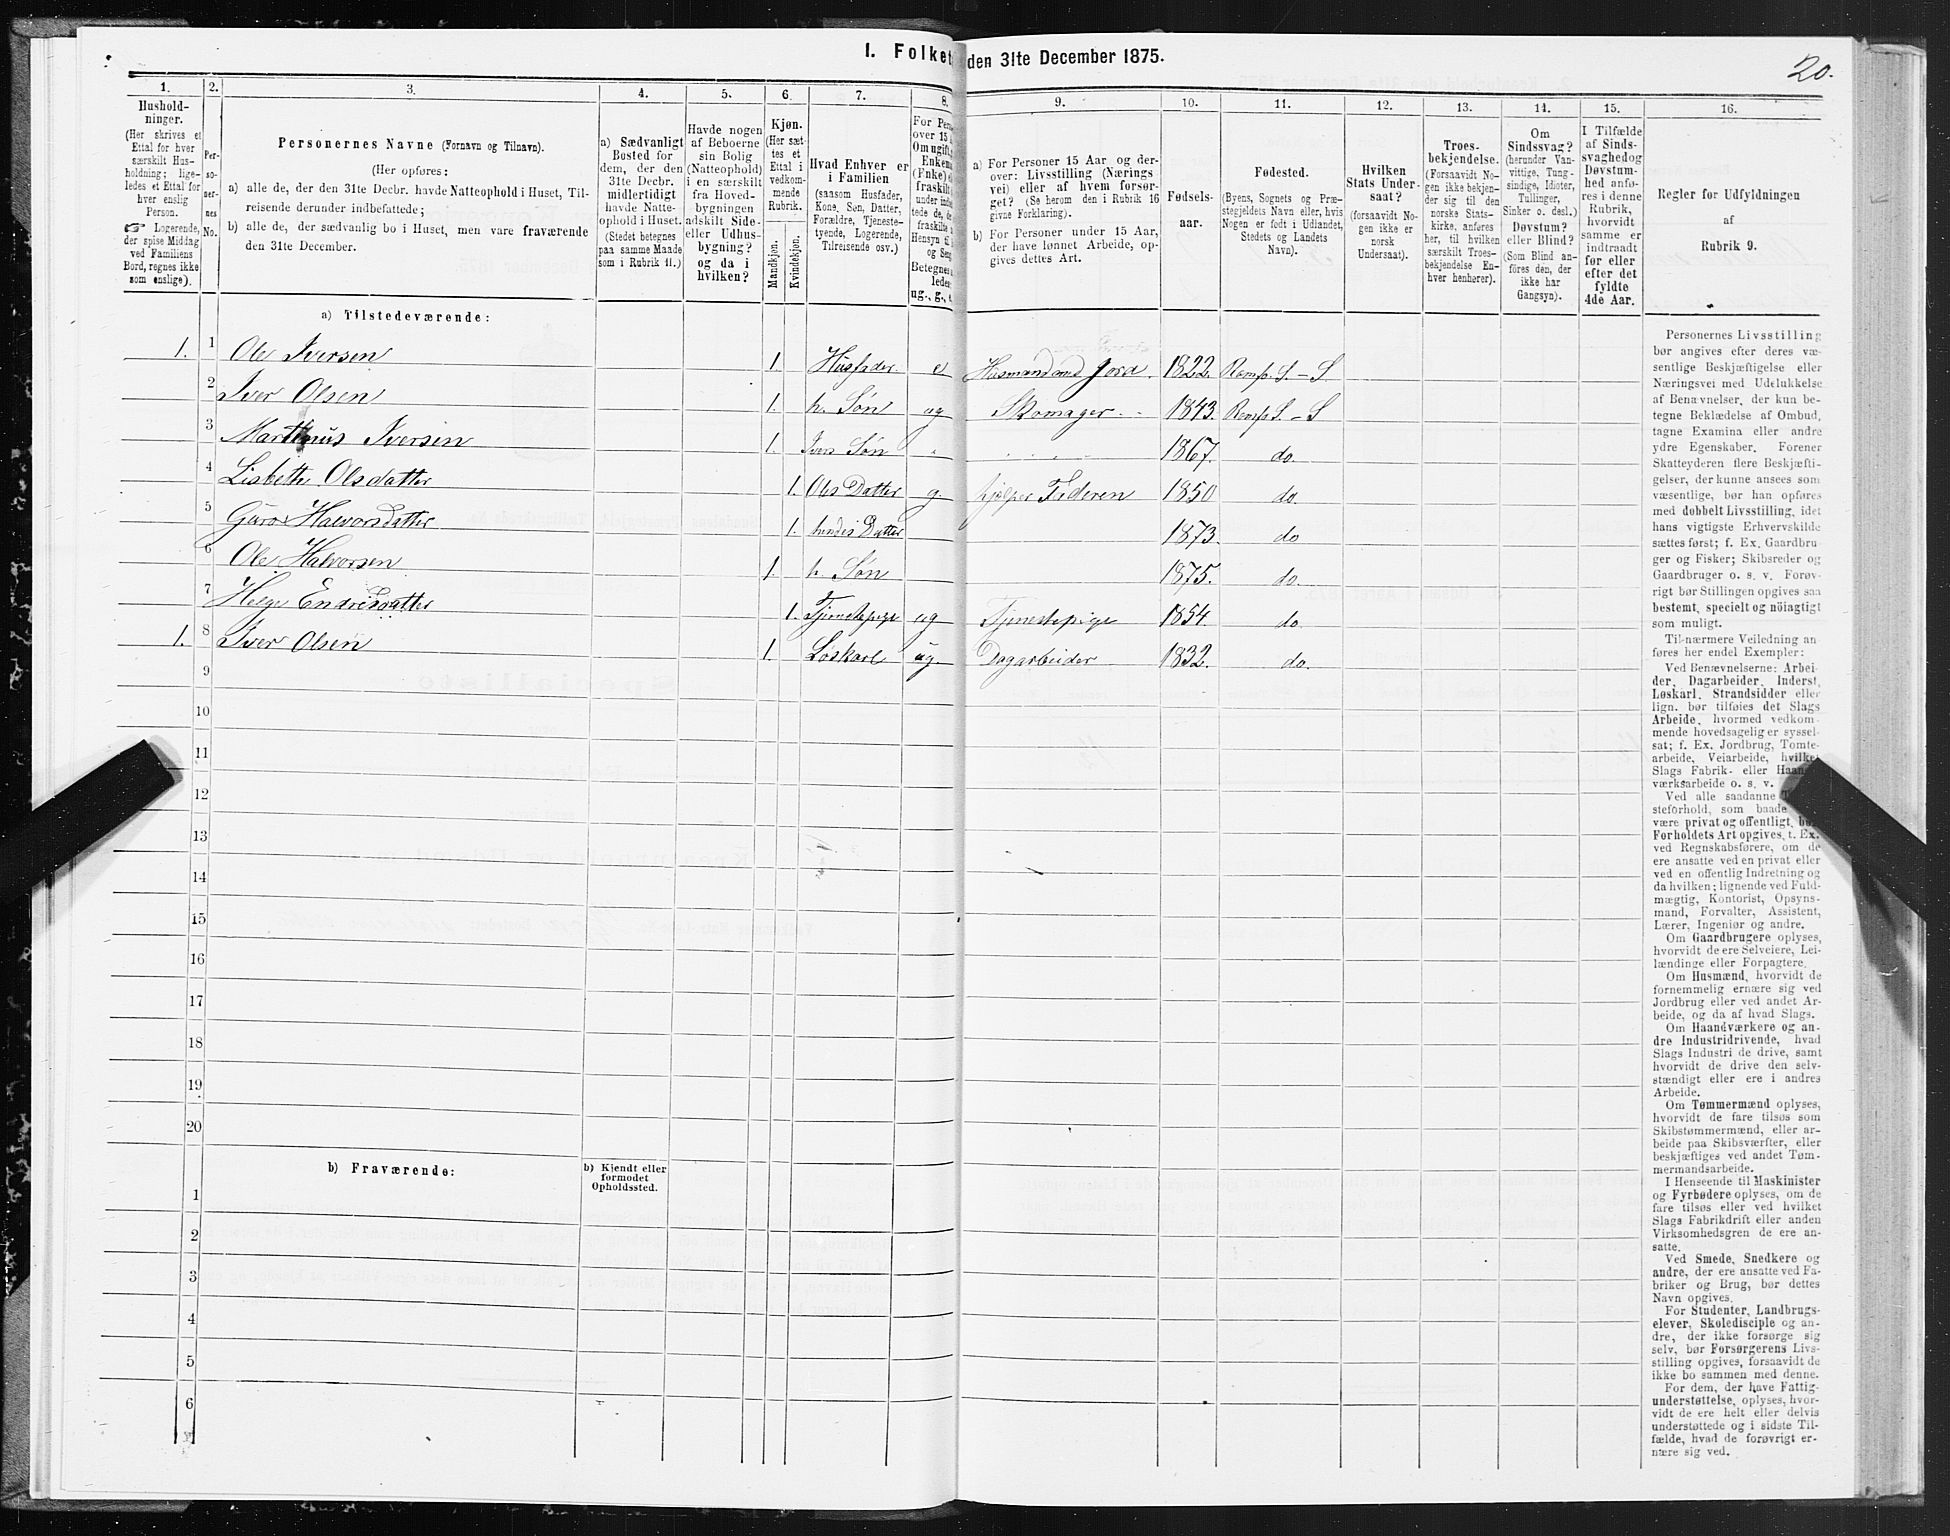 I. Folket den 31te December 1875.
20.
1. 2. 3. 4. 5. 6. 7. 8. 9. 10. 11. 12. 13. 14. 15. 16.
Hushold-
ninger.
(Her skrives et
Ettal for hver
særskilt Hus-
holdning; lige-
ledes et Ettal for
hver enslig
Person.
☞ Logerende,
der spise Middag
ved Familiens
Bord, regnes ikke
som enslige).
Per-
so-
ner-
nes
No.
Personernes Navne (Fornavn og Tilnavn).
(Her opføres:
a) alle de, der den 31te Decbr. havde Natteophold i Huset, Til-
reisende derunder indbefattede;
b) alle de, der sædvanlig bo i Huset, men vare fraværende
den 31te December.
a) Sædvanligt
Bosted for
dem, der den
31te Decbr.
midlertidigt
havde Natte-
ophold i Huset.
(Stedet betegnes
paa samme Maade
som i Rubrik 11.)
Havde nogen
af Beboerne
sin Bolig
(Natteophold)
i en særskilt
fra Hoved-
bygningen
adskilt Side-
eller Udhus-
bygning?
og da i
hvilken?
Kjøn.
(Her sæt-
tes et
Ettal i
vedkom-
mende
Rubrik.
Mandkjøn.
Kvindekjøn.
Hvad Enhver er
i Familien
(saasom Husfader,
Kone, Søn, Datter,
Forældre, Tjeneste-
tyende, Logerende,
Tilreisende osv.)
For Pers
over 15
Om ugift,
Enkem
(Enke)
fraskilt
under indbe
tede de,
fraskilte
Hensyn til
og Seng
Betegnes
ledes
ug., g., e.
a) For Personer 15 Aar og der-
over: Livsstilling (Nærings
vei) eller af hvem forsør-
get? (Se herom den i Rubrik 16
givne Forklaring).
b) For Personer under 15 Aar,
der have lønnet Arbeide, op-
gives dettes Art.
Fødsels-
aar.
Fødested.
(Byens, Sognets og Præ-
stegjeldets Navn eller, hvis
Nogen er født i Udlandet,
Stedets og Landets
Navn).
Hvilken
Stats Under-
saat?
(forsaavidt No-
gen ikke er
norsk
Undersaat).
Troes-
bekjendelse.
(Forsaavidt No-
gen ikke bekjen-
der sig til den
norske Stats-
kirke, anføres
her, til hvilken
særskilt Troes-
bekjendelse En-
hver henhører).
Om
Sindssvag?
(herunder Van-
vittige, Tung-
sindige, Idioter,
Tullinger,
Sinker o. desl.)
Døvstum?
eller Blind?
(Som Blind an-
føres den, der
ikke har
Gangsyn).
I Tilfælde
af Sinds-
svaghed og
Døvstum-
hed anfø-
res i denne
Rubrik,
hvorvidt
samme er
indtraadt
før eller
efter det
fyldte
4de Aar.
Regler for Udfyldningen
af
Rubrik 9.
a) Tilstedeværende:
1. 1 Ole Iversen 1. Husfader. e Husmand med Jord. 1822. Romfo. S. – S
2 Iver Olsen 1. h. Søn ug Skomager. 1843. Romfo S. – S
3 Marthinus Iversen 1. Ivers Søn 1867. do.
4 Lisbeth Olsdatter 1. Oles Datter g. hjelper Faderen 1850 do
5 Guro Halvorsdatter 1. hendes Datter 1873. do
6 Ole Halvorsen 1. h. Søn 1875. do.
7 Helge Endresdatter 1. Tjenestepige ug Tjenestepige 1854. do.
1. 8 Iver Olsen 1. Løskarl ug. Dagarbeider 1832. do.
9
10
11
12
13
14
15
16
17
18
19
20
b) Fraværende:
b) Kjendt eller
formodet
Opholdssted.
1
2
3
4
5
6
Personernes Livsstilling
bør angives efter deres væ-
sentlige Beskjæftigelse eller
Næringsvei med Udelukkelse
af Benævnelser, der kun be-
tegne Beklædelse af Ombud,
tagne Examina eller andre
ydre Egenskaber. Forener
Skatteyderen flere Beskjæfti-
gelser, der kunne ansees som
væsentlige, bør han opføres
med dobbelt Livsstilling, idet
hans vigtigste Erhvervskilde
sættes først; f. Ex. Gaardbru-
ger og Fisker; Skibsreder og
Gaardbruger o. s. v. Forøv-
rigt bør Stillingen opgives saa
bestemt, specielt og nöiagtigt
som muligt.
Til nærmere Veiledning an-
føres her endel Exempler:
Ved Benævnelserne: Arbei-
der, Dagarbeider, Inderst,
Løskarl, Strandsidder eller
lign. bør tilføies det Slags
Arbeide, hvormed vedkom-
mende hovedsagelig er syssel-
sat; f. Ex. Jordbrug, Tomte-
arbeide, Veiarbeide, hvilket
Slags Fabrik- eller Haand-
værksarbeide o. s. v.
Ved alle saadanne
steforhold, som baade
være privat og offentligt, bør
Forholdets Art opgives, t. Ex.
ved Regnskabsførere, om de
ere ansatte ved en privat eller
ved en offentlig Indretning og
da hvilken; lignende ved Fuld-
mægtig, Kontorist, Opsyns-
mand, Forvalter, Assistent,
Lærer, Ingeniør og andre.
Om Gaardbrugere oplyses,
hvorvidt de ere Selveiere, Lei-
lændinge eller Forpagtere.
Om Husmænd, hvorvidt de
fornemmelig ernære sig ved
Jordbrug eller ved andet Ar-
beide, og da af hvad Slags.
Om Haandværkere og an-
dre Industridrivende, hvad
Slags Industri de drive, samt
hvorvidt de drive den selv-
stændigt eller ere i andres
Arbeide.
Om Tømmermænd oplyses,
hvorvidt de fare tilsøs som
Skibstømmermænd, eller ar-
beide paa Skibsværfter, eller
beskjæftiges ved andet Tøm-
mermandsarbeide.
I Henseende til Maskinister
og Fyrbødere oplyses, om de
fare tilsøs eller ved hvilket
Slags Fabrikdrift eller anden
Virksomhedsgren de ere an-
satte.
Ved Smede, Snedkere og
andre, der ere ansatte ved Fa-
briker og Brug, bør dettes
Navn opgives.
For Studenter, Landbrugs-
elever, Skoledisciple og an-
dre, der ikke forsørge sig
selv, bør Forsørgerens Livs-
stilling opgives, forsaavidt de
ikke bo sammen med denne.
For dem, der have Fattig-
understøttelse, oplyses, hvor-
vidt de ere helt eller delvis
understøttede og i sidste Til-
fælde, hvad de forøvrigt er-
nære sig ved.